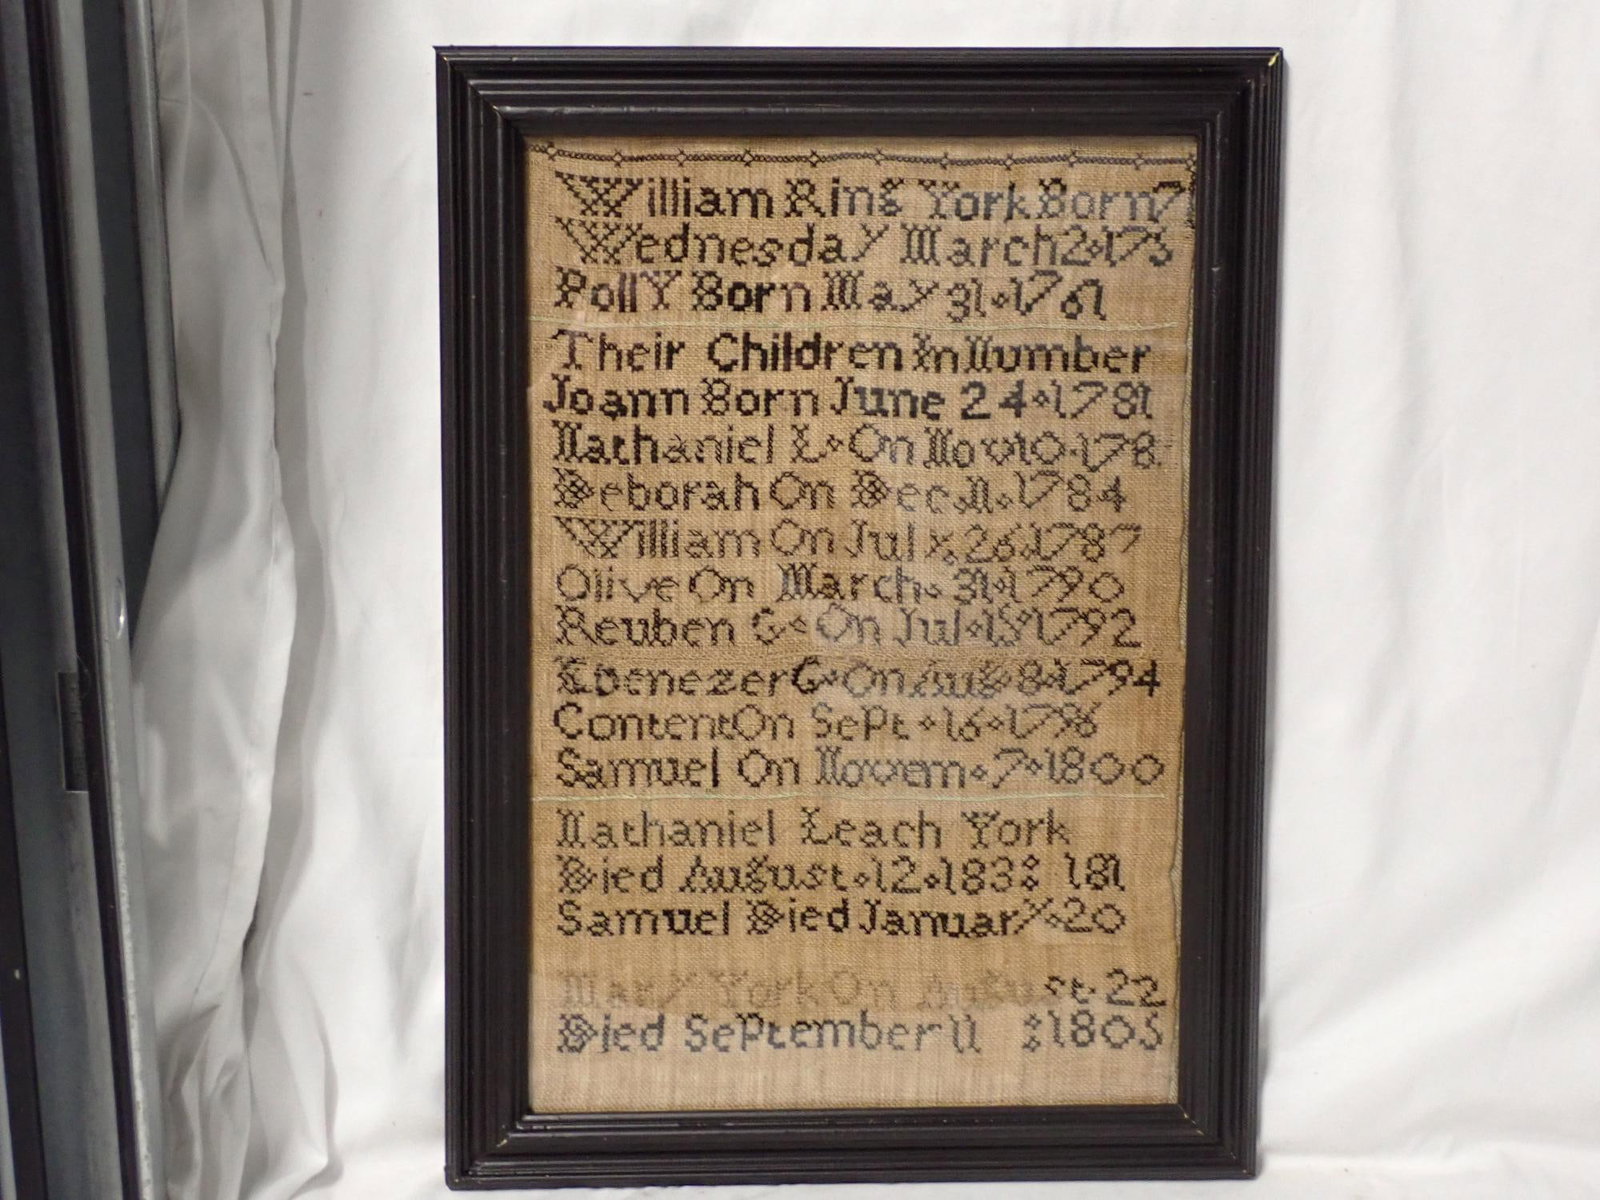 William Ring York Born 7
Wednesday March 2 175
Polly Born May 31 1761
Their Children In Number
Joann Born June 24 1781
Nathaniel L On Nov 10 178
Deborah On Dec 11 1784
William On July 26 1787
Olive On March 31 1790
Reuben G On Jul 15 1792
Ebenezer G On Aug 8 1794
Content On SePt 16 1796
Samuel On Novem 7 1800
Nathaniel Leach York
Died August 12 183 : 181
Samuel Died January 20
Mary York On August 22
Died SePtember 11 : 1805